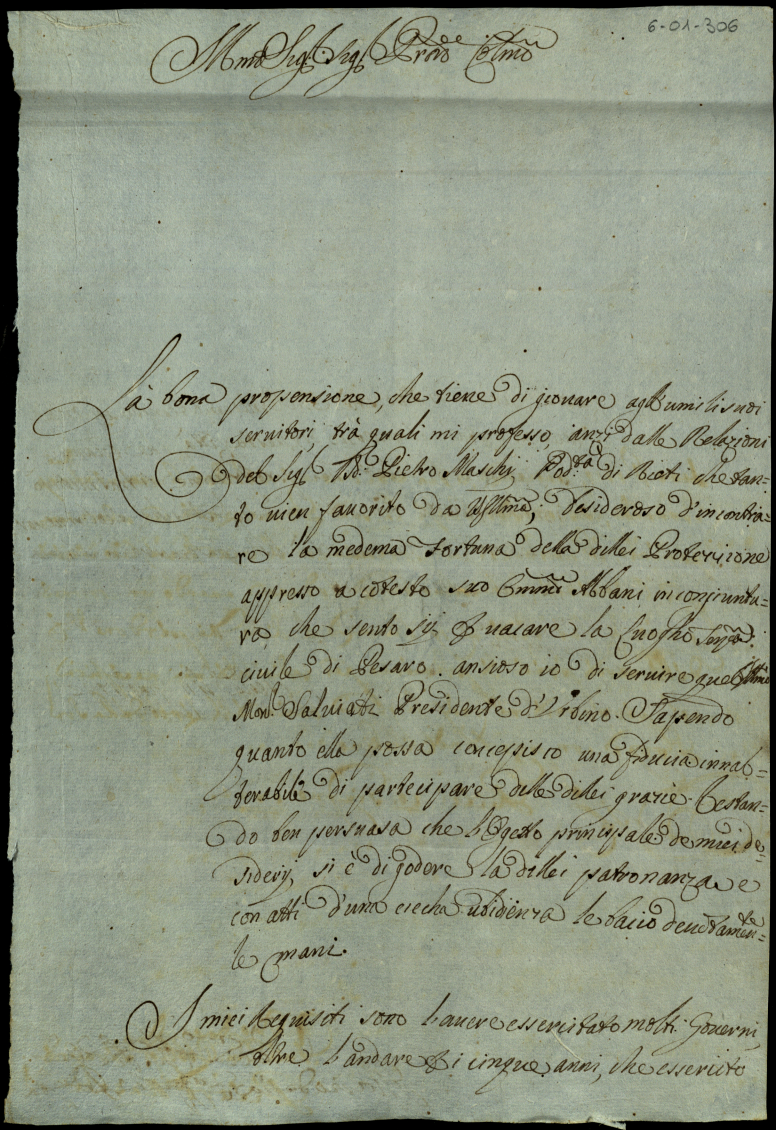 6-01-306
Sig.r Sig.r Prône Colmo
Là bona propensione, che tiene di giouare agl'umilisuoi
seruitori, trà quali mi professo anzi dalle Relazioni
del Sig.r Pietro Maschi, Pod.tà di Rieti che tan=
to uien fauorito da desideroso d'incontra=
re la medema Fortuna della dilei Protezzione
appresso a cotesto suo Albani in congiuntu=
ra, che sento sij vacare la Luogho
ciuile di Pesaro. ansioso io di seruire
Mon.r Saluiati Presidente d'Urbino. Sapendo
quanto ella possa concepisco una fiducia innal=
terabile di partecipare delle dilei grazie. Restan=
do ben persuasa che l'Ogetto principale de miei de=
siderij, si è di godere la dilei patronanza e
con atti d'una ciecha ubidienza le bacio deuotamen.te=
le mani.
I miei Requisiti sono l'auere essercitato molti Gouerni,
oltre l'andare cinque anni, che essercito